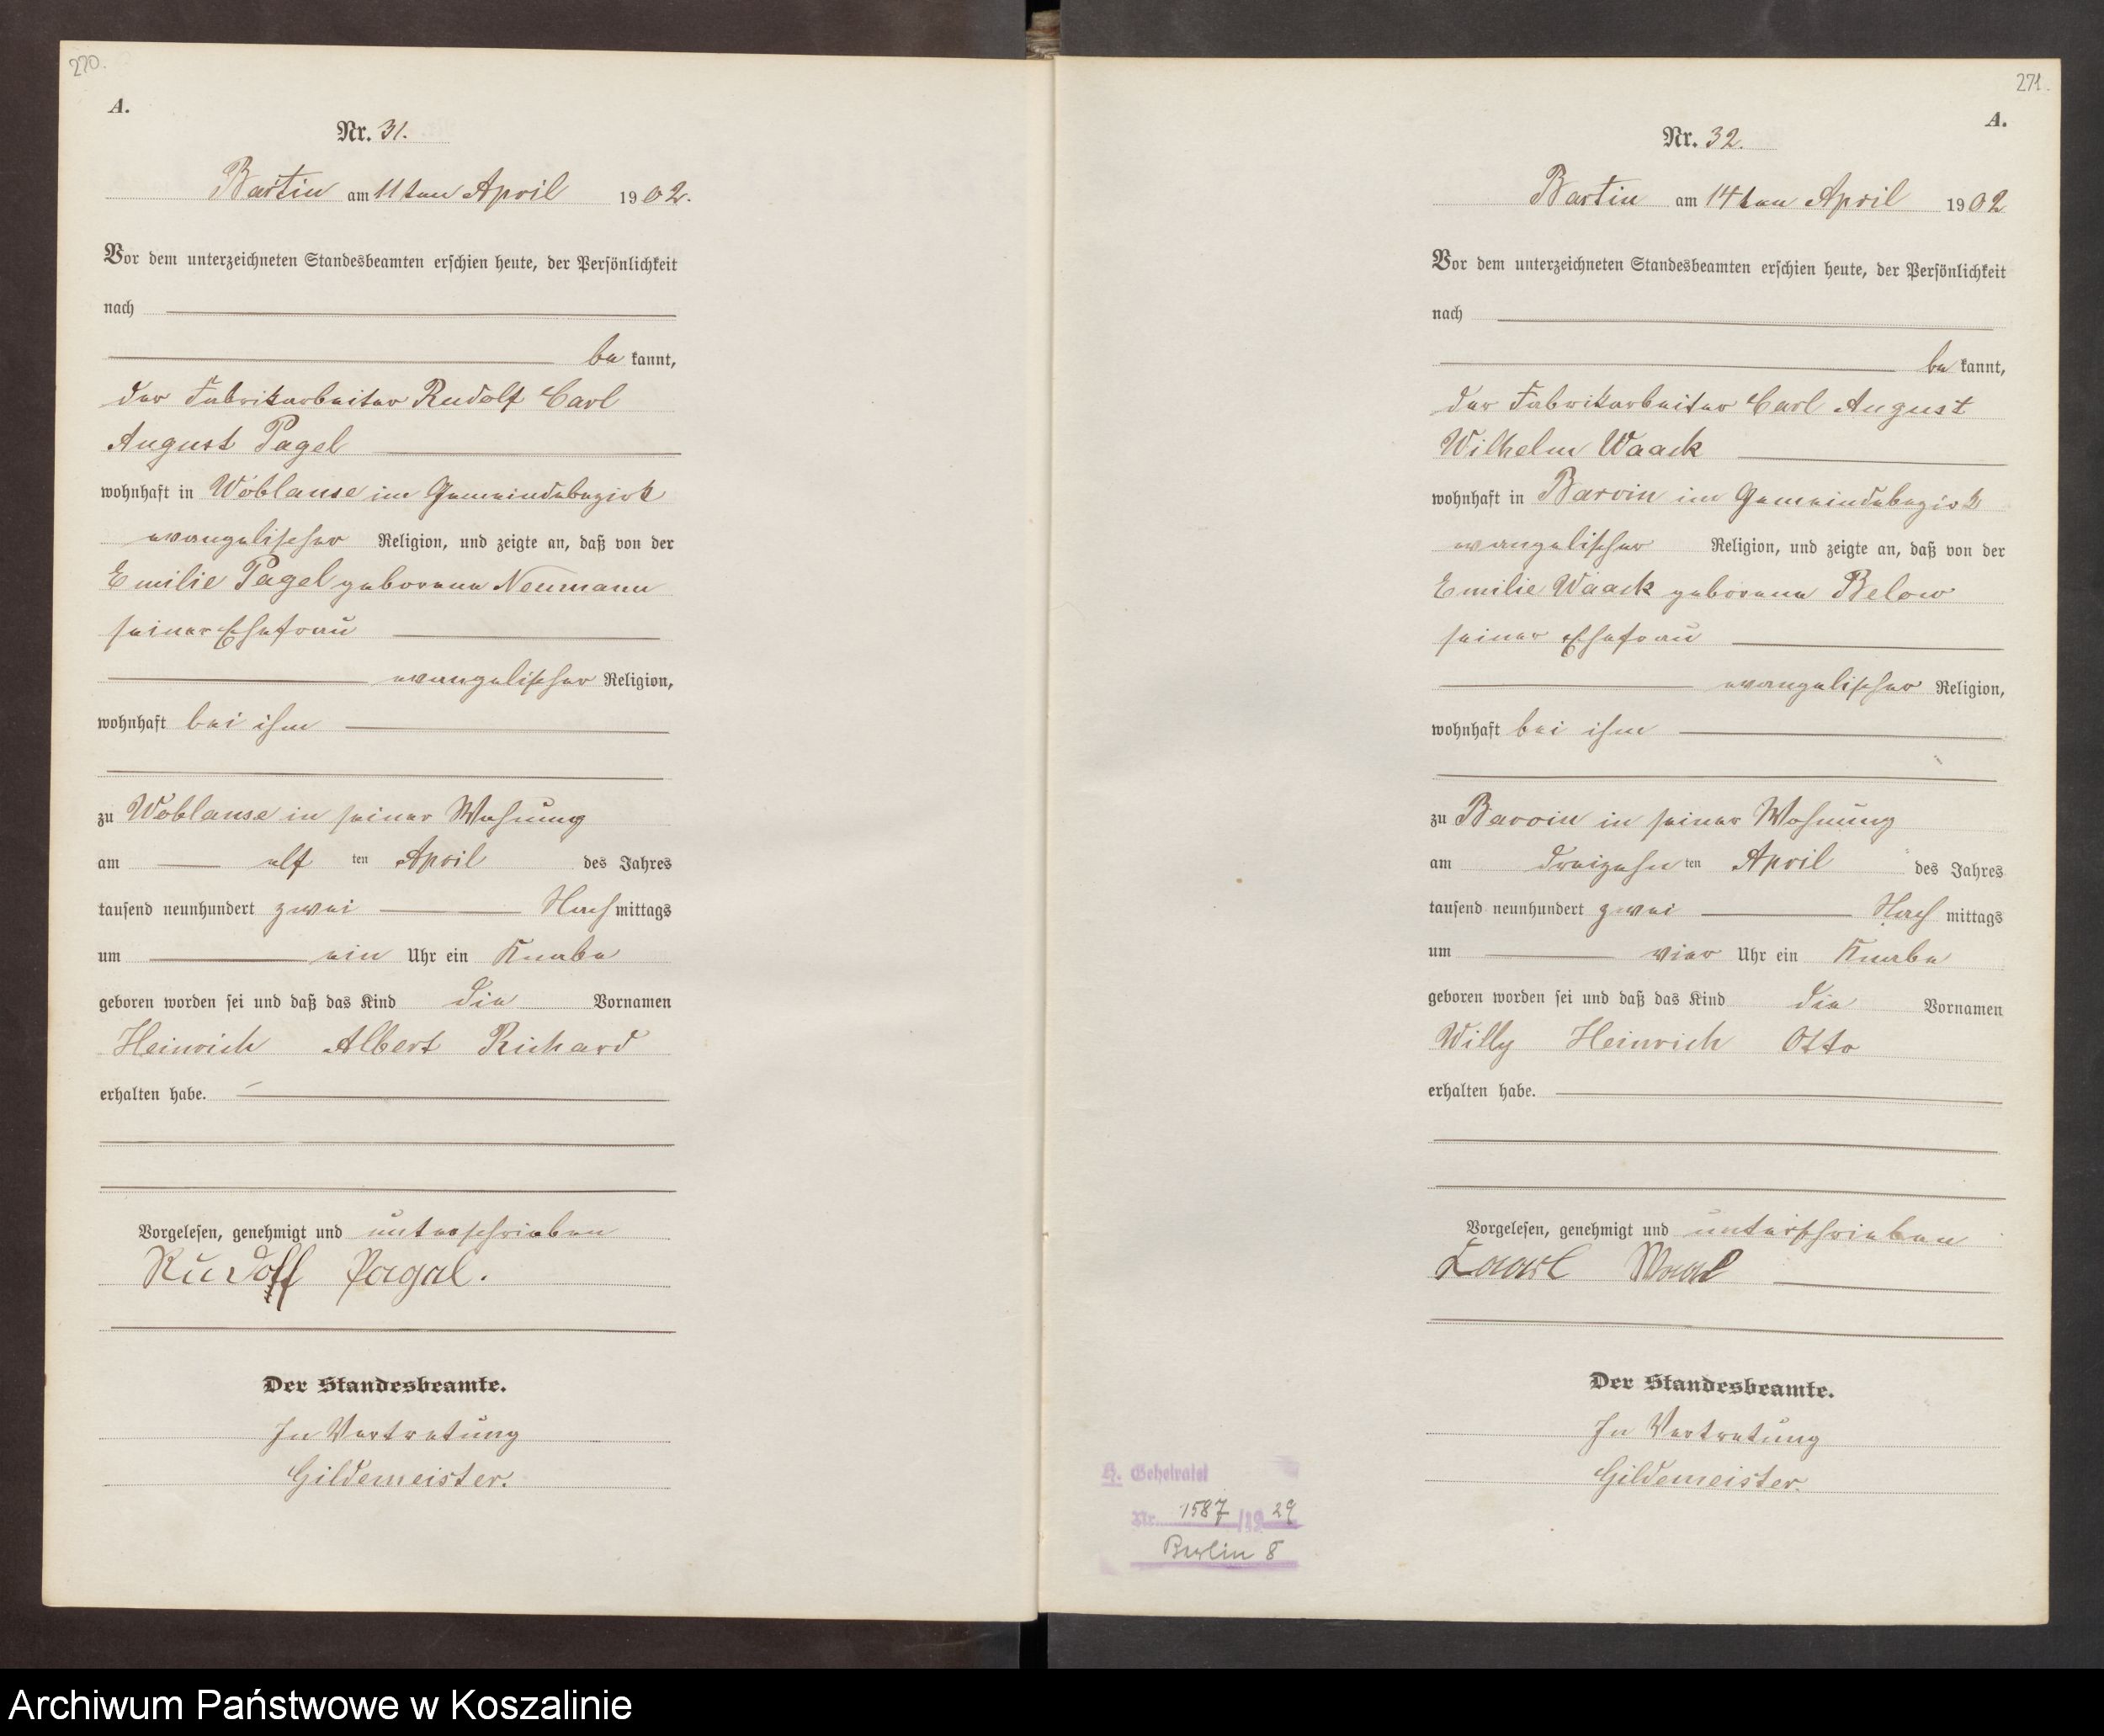 270.
A.
Nr. 31.
Bartin am 11ten April 1902.
Vor dem unterzeichneten Standesbeamten erschien heute, der Persönlichkeit
nach
be kannt,
der Fabrikarbeiter Rudolf Carl
August Pagel
wohnhaft in Woblanse im Gemeindebezirk
evangelischer Religion, und zeigte an, daß von der
Emilie Pagel geborene Neumann
seiner Ehefrau
evangelischer Religion,
wohnhaft bei ihm
zu Woblanse in seiner Wohnung
am elf ten April des Jahres
tausend neunhundert zwei Nach mittags
um ein Uhr ein Knabe
geboren worden sei und daß das Kind die Vornamen
Heinrich Albert Richard
erhalten habe.
Vorgelesen, genehmigt und unterschrieben
Rudolf Pagel.
Der Standesbeamte.
In Vertretung
Gildemeister.
271.
A.
Nr. 32.
Bartin am 14ten April 1902
Vor dem unterzeichneten Standesbeamten erschien heute, der Persönlichkeit
nach
be kannt,
der Fabrikarbeiter Carl August
Wilhelm Waack
wohnhaft in Barvin im Gemeindebezirk
evangelischer Religion, und zeigte an, daß von der
Emilie Waack geborene Below
seiner Ehefrau
evangelischer Religion,
wohnhaft bei ihm
zu Barvin in seiner Wohnung
am dreizehn ten April des Jahres
tausend neunhundert zwei Nach mittags
um vier Uhr ein Knabe
geboren worden sei und daß das Kind die Vornamen
Willy Heinrich Otto
erhalten habe.
Vorgelesen, genehmigt und unterschrieben
Der Standesbeamte.
In Vertretung
Gildemeister.
Geheiratet
Nr. 1587/1929
Berlin 8
Archiwum Państwowe w Koszalinie